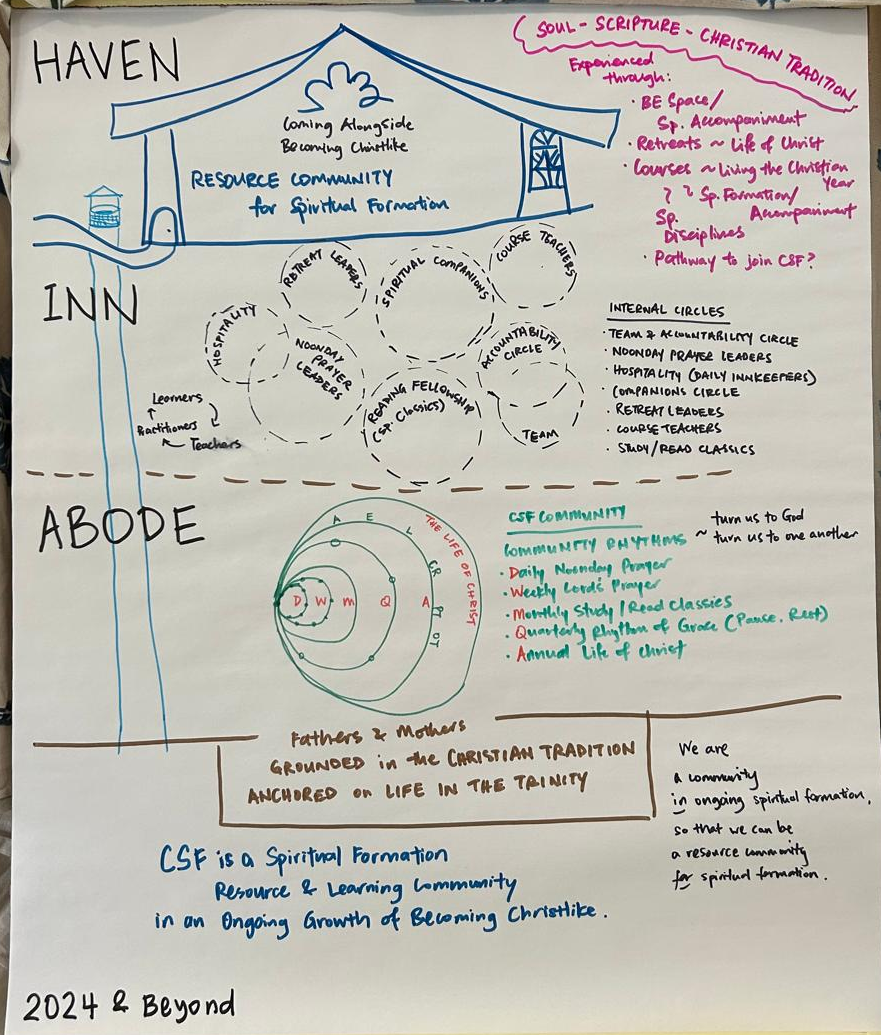 HAVEN
SOUL - SCRIPTURE - CHRISTIAN TRADITION
Experienced
through:
· BE Space/
Sp. Accompaniment
· Retreats ~ Life of Christ
· Courses ~ Living the Christian
Year
? ? Sp. Formation/
Sp. Accompaniment
Disciplines
· Pathway to join CSF?
Coming Alongside
Becoming Christlike
RESOURCE COMMUNITY
for Spiritual Formation
INN
RETREAT LEADERS
SPIRITUAL COMPANIONS
COURSE TEACHERS
HOSPITALITY
NOONDAY
PRAYER
LEADERS
ACCOUNTABILITY
CIRCLE
READING FELLOWSHIP
(Sp. Classics)
TEAM
Learners
Practitioners
Teachers
INTERNAL CIRCLES
· TEAM & ACCOUNTABILITY CIRCLE
· NOONDAY PRAYER LEADERS
· HOSPITALITY (DAILY INNKEEPERS)
· COMPANIONS CIRCLE
· RETREAT LEADERS
· COURSE TEACHERS
· STUDY/READ CLASSICS
ABODE
A E L CR PT OT
THE LIFE OF CHRIST
D W M Q A
CSF COMMUNITY
COMMUNITY RHYTHMS ~ turn us to God
turn us to one another
· Daily Noonday Prayer
· Weekly Lord's Prayer
· Monthly Study/Read Classics
· Quarterly Rhythm of Grace (Pause, Rest)
· Annual Life of Christ
Fathers & Mothers
GROUNDED in the CHRISTIAN TRADITION
ANCHORED on LIFE IN THE TRINITY
We are
a community
in ongoing spiritual formation,
so that we can be
a resource community
for spiritual formation.
CSF is a Spiritual Formation
Resource & Learning Community
in an Ongoing Growth of Becoming Christlike.
2024 & Beyond